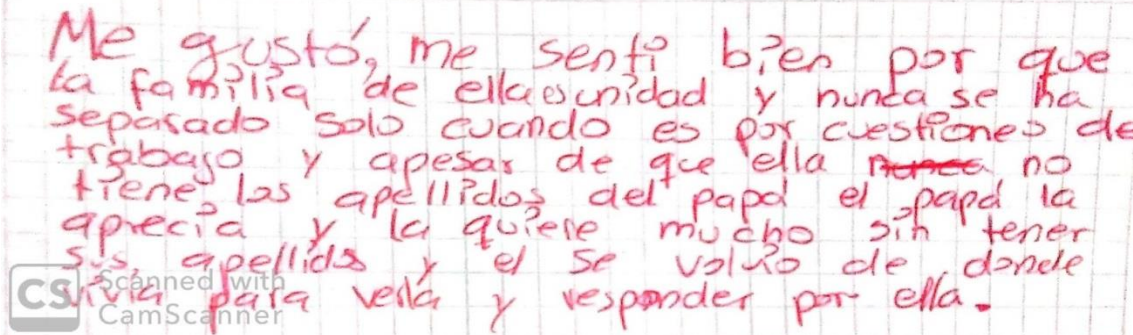 Me gustó, me senti bien por que
la familia de ella es unidad y nunca se ha
separado solo cuando es por cuestiones de
trabajo y apesar de que ella nunca no
tiene los apellidos del papá el papá la
aprecia y la quiere mucho sin tener
sus apellidos y el se volvio de donde
vivia para verla y responder por ella.
CS Scanned with
CamScanner